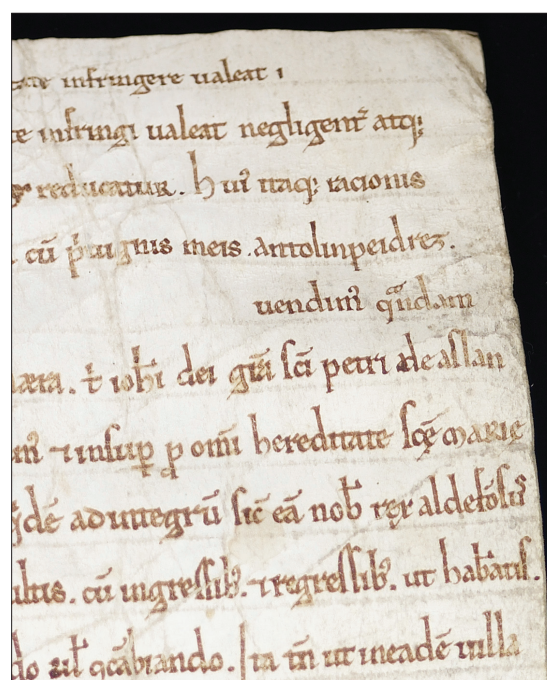 infringere ualeat ı
te infringi ualeat negligent̄ atq;
reducatur. huı᷒ itaq; racionis
cū p̄uignis meis. antolinpeidrez.
uendim᷒ quandam
. ⁊ iohi dei gr̄a sc̄i petri de aslan
⁊ insup̱ ꝓ om̄i hereditate sc̄ę marię
adintegrū sic̄ eā nob̄ rex aldefōsus
ultis. cū ingressib᷒. ⁊ regressib᷒. ut habeatis.
do ul̄ q̄cābiando. Ita tn̄ ut ineadē uilla